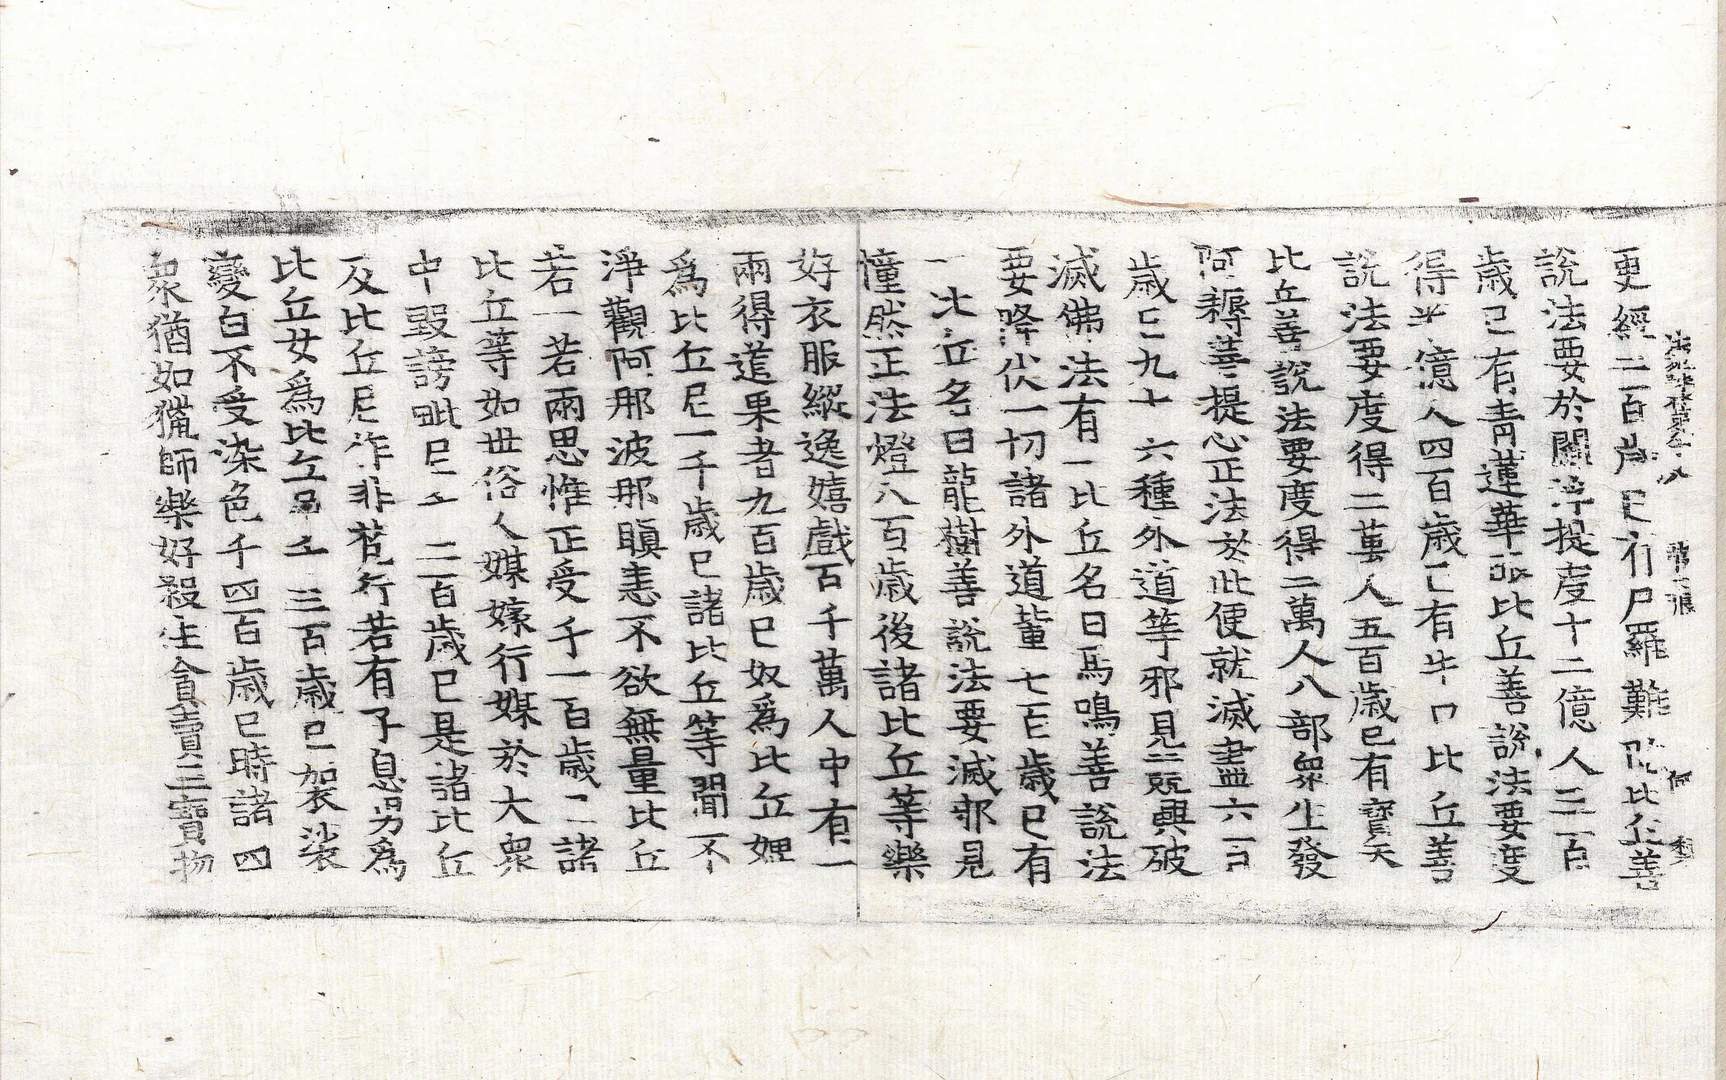 更經二百歲已有尸羅難陀比丘善
說法要於閻浮提度十二億人三百
歲已有青蓮華眼比丘善說法要度
得半億人四百歲已有牛口比丘善
說法要度得二萬人五百歲已有寶天
比丘善說法要度得二萬人八部衆生發
阿耨菩提心正法於此便就滅盡六百
歲已九十六種外道等邪見競興破
滅佛法有一比丘名曰馬鳴善說法
要降伏一切諸外道輩七百歲已有
一比丘名曰龍樹善說法要滅邪見
幢然正法燈八百歲後諸比丘等樂
好衣服縱逸嬉戲百千萬人中有一
兩得道果者九百歲已奴爲比丘婢
爲比丘尼一千歲已諸比丘等聞不
淨觀阿那波那瞋恚不欲無量比丘
若一若兩思惟正受千一百歲已諸
比丘等如世俗人媒嫁行媒於大衆
中毀謗毗尼千二百歲已是諸比丘
及比丘尼作非梵行若有子息男爲
比丘女爲比丘尼千三百歲已袈裟
變白不受染色千四百歲已時諸四
衆猶如獵師樂好殺生貪賣三寶物